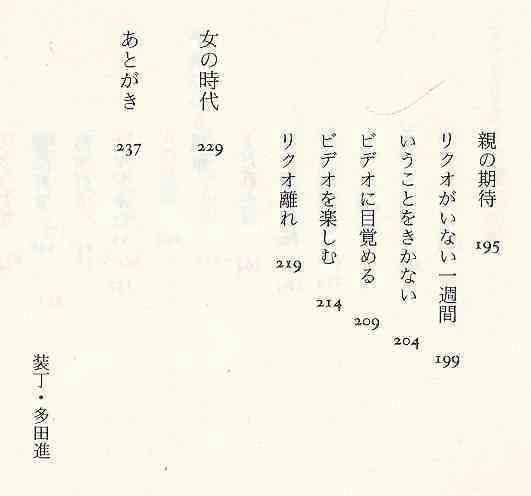 親の期待 195
リクオがいない一週間 199
いうことをきかない 204
ビデオに目覚める 209
ビデオを楽しむ 214
リクオ離れ 219
女の時代 229
あとがき 237
装丁・多田進